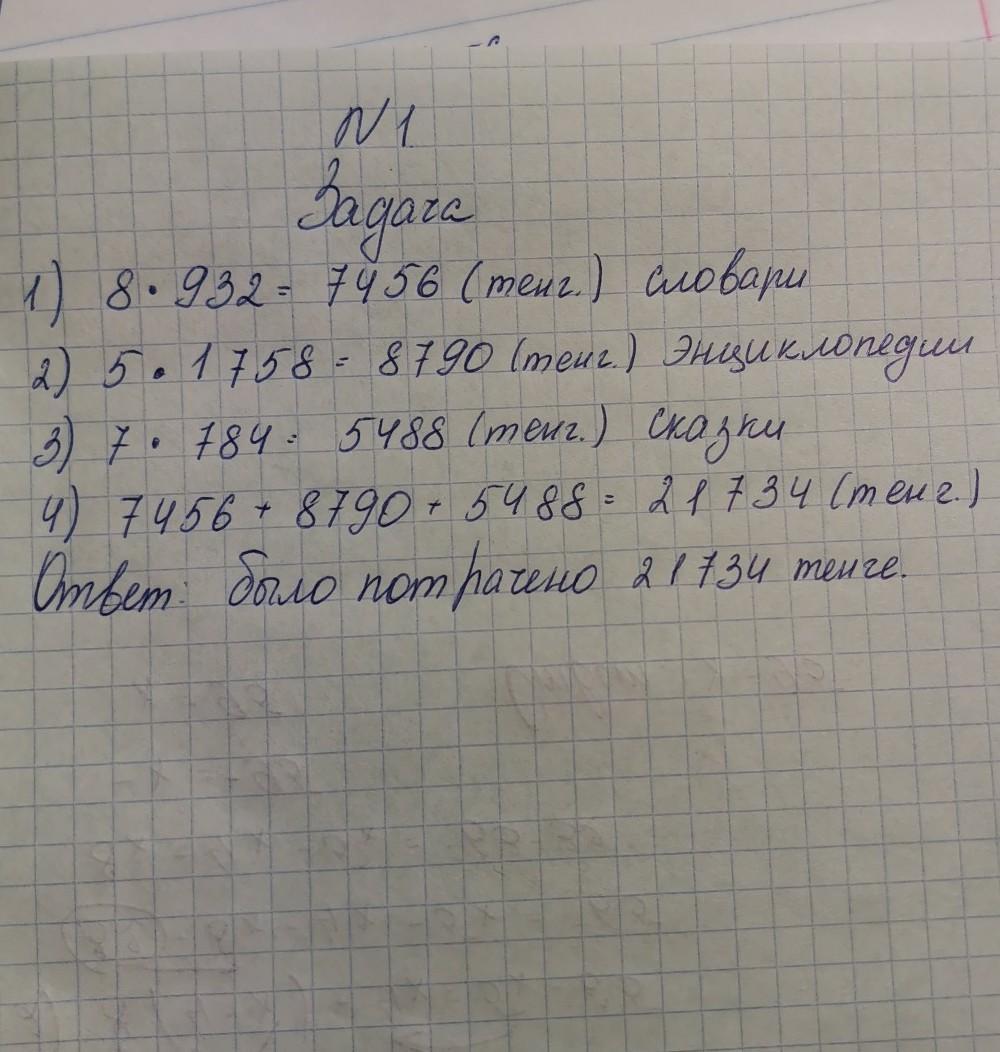 N 1
Задача
1) 8 · 932 = 7456 (тенг.) словари
2) 5 · 1758 = 8790 (тенг.) энциклопедии
3) 7 · 784 = 5488 (тенг.) сказки
4) 7456 + 8790 + 5488 = 21734 (тенг.)
Ответ: было потрачено 21734 тенге.